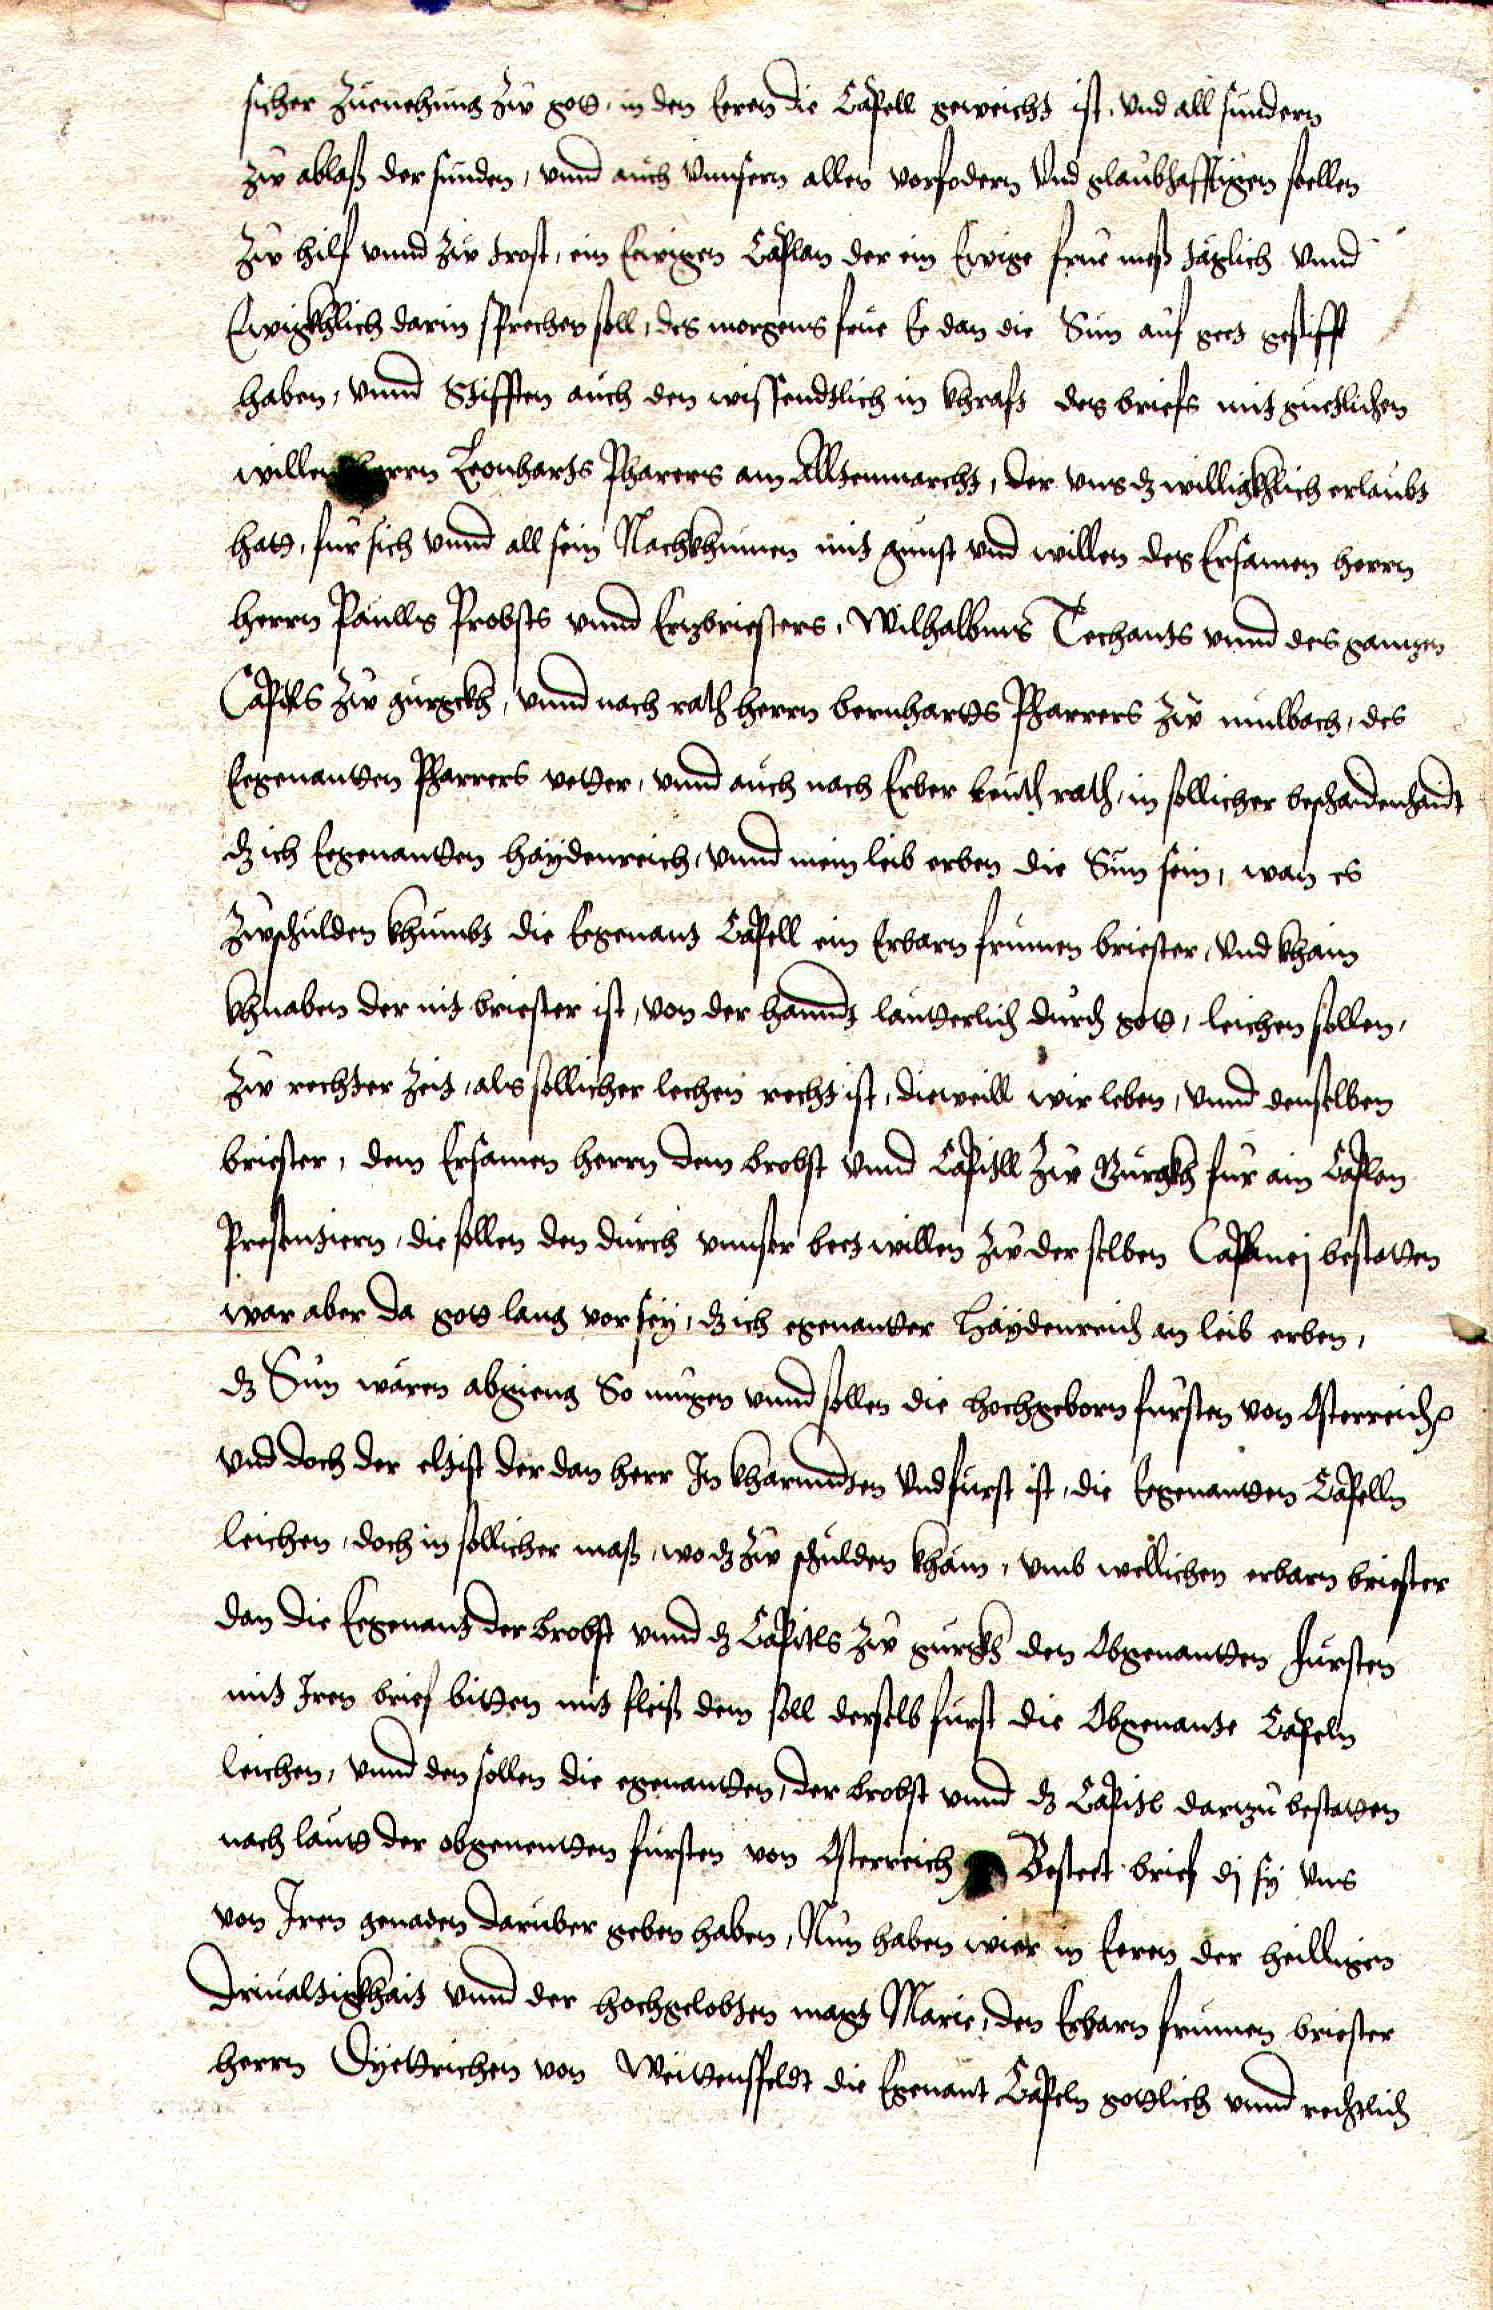 sicher Zuenehung Zw got, in den Eeren die Capell geweicht ist, vnd all sundern
Zw ablaß der sunden, vnnd auch vnnsern allen vorfodern vnd glaubhafftigen seellen
Zw hilf vnnd Zw trost, ein Ewigen Caplan der ein Ewige frue meß täglich vnnd
Ewigkhlich darin sprechen soll, des morgens frue Ee dan die Sun auf geet gestifft
haben, vnnd Stifften auch den wissendtlich in khraft des briefs mit guetlichen
willen herrn Leonharts Pharers am Alltenmarcht, der vns dz willigkhlich erlaubt
hatt, für sich vnnd all sein Nachkhumen mit gunst vnd willen des Ersamen herrn
herrn Paulls Probsts vnnd Ertzbriesters, Wilhalbms Techants vnnd des gantzen
Capitls Zw gurgckh, vnnd nach rath herrn bernharts Pharrers Zw mulbach, des
Eegenantten Pharrers vetter, vnnd auch nach Erber leuth rath, in sollicher beschaidenhaidt
dz ich Eegenantten haydenreich, vnnd mein leib erben die Sun sein, wan es
Zwschulden khumbt die Eegenant Capell ein Erbarn frumen briester, vnd khain
khnaben der nit briester ist, von der hanndt lautterlich durch gott, leichen sollen,
Zw rechter Zeit, als sollicher lechen recht ist, dieweill wir leben, vnnd denselben
briester, dem Ersamen herrn dem brobst vnnd Capitll Zw Gurgkh für ain Caplan
Presentiern, die sollen den durch vnnser beet willen Zw der selben Caplanej bestatten
war aber da gott lang vor sey, dz ich egenantter Haydenreich an leib erben,
dz Sun wären abgieng So mugen vnnd sollen die hochgeborn fursten von Osterreich
vnd doch der eltist der dan herr In kharnndten vnd furst ist, die Eegenantten Capelln
leichen, doch in sollicher maß, wo dz Zw schulden kham, vmb wellichen erbarn briester
dan die Eegenant der brobst vnnd dz Capitls Zw gurgkh den Obgenantten fursten
mit Iren brief bitten mit fleiß dem soll derselb furst die Obgenante Capeln
leichen, vnnd den sollen die egenantten, der brobst vnnd dz Capitl dartzu bestatten
nach lautt der obgenentten fursten von Osterreich Bestett brief dj sy vns
von Iren genaden daruber geben haben, Nun haben wier in Eeren der heilligen
Driualtigkhait vnnd der hochgelobten magt Marie, den Erbarn frumen briester
herrn Dyettrichen von Weittensfeldt die Egenant Capeln gottlich vnnd rechtlich